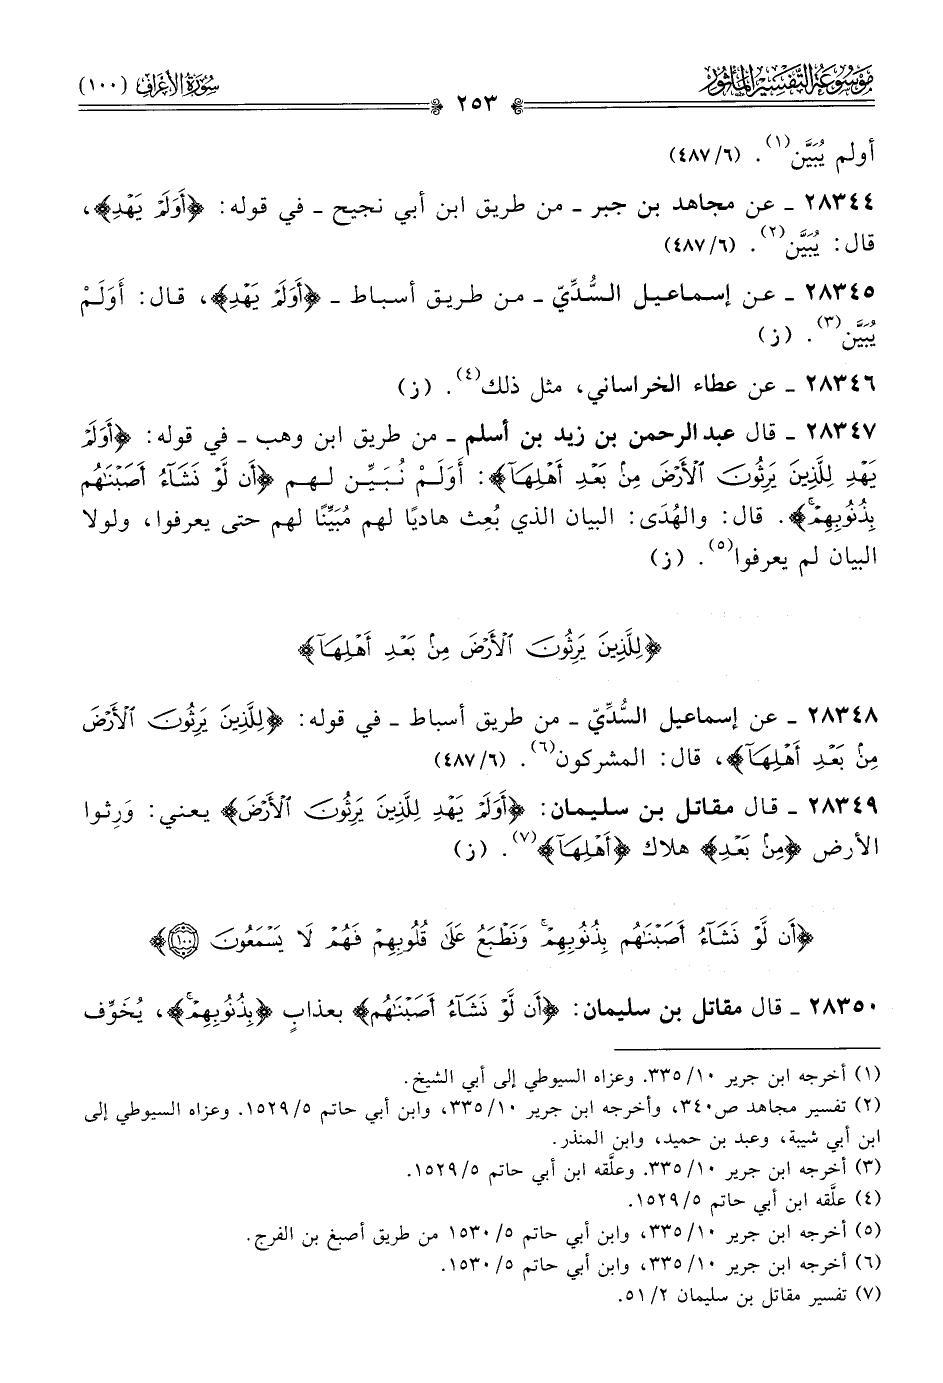 موسوعة التفسير المأثور
سورة الأعراف (١٠٠)
٢٥٣
أولم يُبَيَّن(١). (٤٨٧/٦)
٢٨٣٤٤ ـ عن مجاهد بن جبر ـ من طريق ابن أبي نجيح ـ في قوله: ﴿أَوَلَمْ يَهْدِ﴾،
قال: يُبَيَّن(٢). (٤٨٧/٦)
٢٨٣٤٥ ـ عن إسماعيل السُّدِّيّ ـ من طريق أسباط ـ ﴿أَوَلَمْ يَهْدِ﴾، قال: أَوَلَمْ
يُبَيَّن(٣). (ز)
٢٨٣٤٦ ـ عن عطاء الخراساني، مثل ذلك(٤). (ز)
٢٨٣٤٧ ـ قال عبد الرحمن بن زيد بن أسلم ـ من طريق ابن وهب ـ في قوله: ﴿أَوَلَمْ
يَهْدِ لِلَّذِينَ يَرِثُونَ ٱلْأَرْضَ مِنۢ بَعْدِ أَهْلِهَآ﴾: أَوَلَمْ نُبَيِّن لهم ﴿أَن لَّوْ نَشَآءُ أَصَبْنَٰهُم
بِذُنُوبِهِمْۚ﴾. قال: والهُدَى: البيان الذي بُعِث هاديًا لهم مُبَيِّنًا لهم حتى يعرفوا، ولولا
البيان لم يعرفوا(٥). (ز)
﴿لِلَّذِينَ يَرِثُونَ ٱلْأَرْضَ مِنۢ بَعْدِ أَهْلِهَآ﴾
٢٨٣٤٨ ـ عن إسماعيل السُّدِّيّ ـ من طريق أسباط ـ في قوله: ﴿لِلَّذِينَ يَرِثُونَ ٱلْأَرْضَ
مِنۢ بَعْدِ أَهْلِهَآ﴾، قال: المشركون(٦). (٤٨٧/٦)
٢٨٣٤٩ ـ قال مقاتل بن سليمان: ﴿أَوَلَمْ يَهْدِ لِلَّذِينَ يَرِثُونَ ٱلْأَرْضَ﴾ يعني: وَرِثوا
الأرض ﴿مِنۢ بَعْدِ﴾ هلاك ﴿أَهْلِهَآ﴾(٧). (ز)
﴿أَن لَّوْ نَشَآءُ أَصَبْنَٰهُم بِذُنُوبِهِمْۚ وَنَطْبَعُ عَلَىٰ قُلُوبِهِمْ فَهُمْ لَا يَسْمَعُونَ ١٠٠﴾
٢٨٣٥٠ ـ قال مقاتل بن سليمان: ﴿أَن لَّوْ نَشَآءُ أَصَبْنَٰهُم﴾ بعذابٍ ﴿بِذُنُوبِهِمْۚ﴾، يُخَوِّف
(١) أخرجه ابن جرير ١٠/ ٣٣٥. وعزاه السيوطي إلى أبي الشيخ.
(٢) تفسير مجاهد ص٣٤٠، وأخرجه ابن جرير ١٠/ ٣٣٥، وابن أبي حاتم ٥/ ١٥٢٩. وعزاه السيوطي إلى
ابن أبي شيبة، وعبد بن حميد، وابن المنذر.
(٣) أخرجه ابن جرير ١٠/ ٣٣٥. وعلَّقه ابن أبي حاتم ٥/ ١٥٢٩.
(٤) علَّقه ابن أبي حاتم ٥/ ١٥٢٩.
(٥) أخرجه ابن جرير ١٠/ ٣٣٥، وابن أبي حاتم ٥/ ١٥٣٠ من طريق أصبغ بن الفرج.
(٦) أخرجه ابن جرير ١٠/ ٣٣٥، وابن أبي حاتم ٥/ ١٥٣٠.
(٧) تفسير مقاتل بن سليمان ٢/ ٥١.